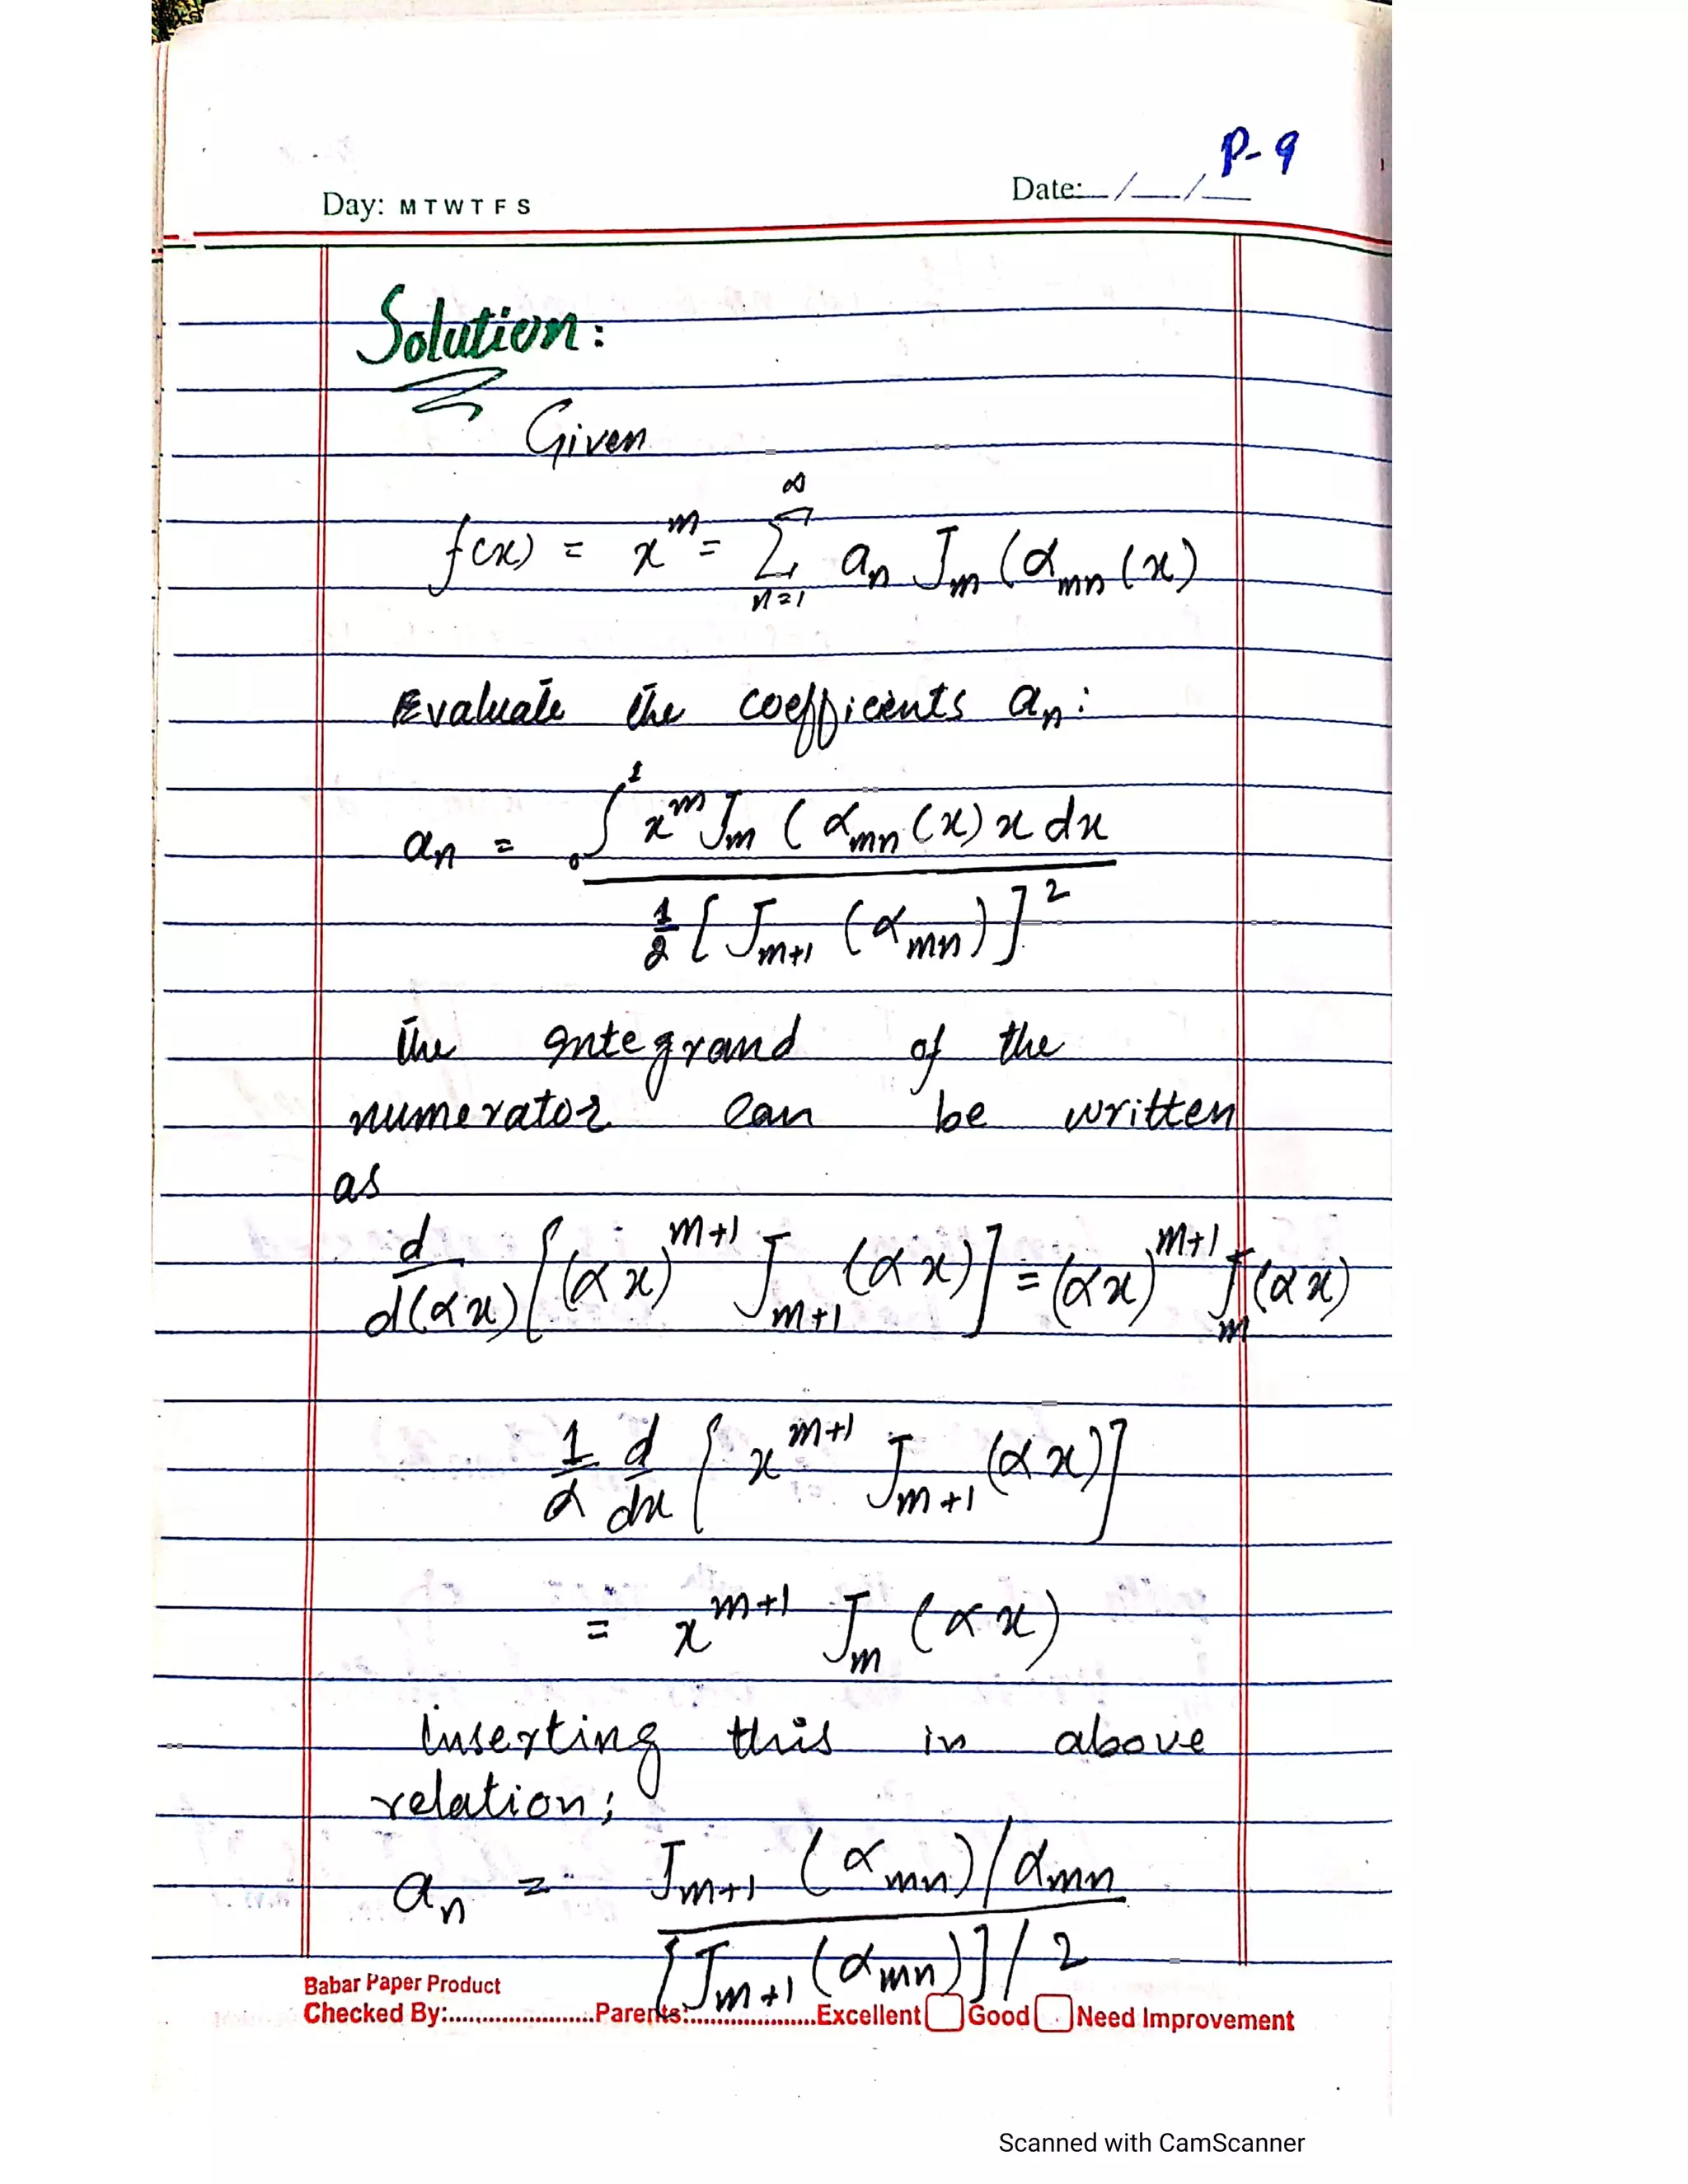 P-9
Day: M T W T F S
Date: __/__/__
Solution:
Given
f(x) = x^m = ∑_{n=1}^{∞} a_n J_m (α_{mn} (x)
Evaluate the coefficients a_n:
a_n = ∫_0^1 x^m J_m (α_{mn} (x) x dx
1/2 [J_{m+1} (α_{mn})]^2
the integrand of the
numerator can be written
as
d/d(αx) [(αx)^{m+1} J_{m+1} (αx)] = (αx)^{m+1} J_m (αx)
1/α d/dx [x^{m+1} J_{m+1} (αx)]
= x^{m+1} J_m (αx)
inserting this in above
relation;
a_n = J_{m+1} (α_{mn}) / α_{mn}
[J_{m+1} (α_{mn})] / 2
Babar Paper Product
Checked By:........................Parents:......................Excellent Good Need Improvement
Scanned with CamScanner